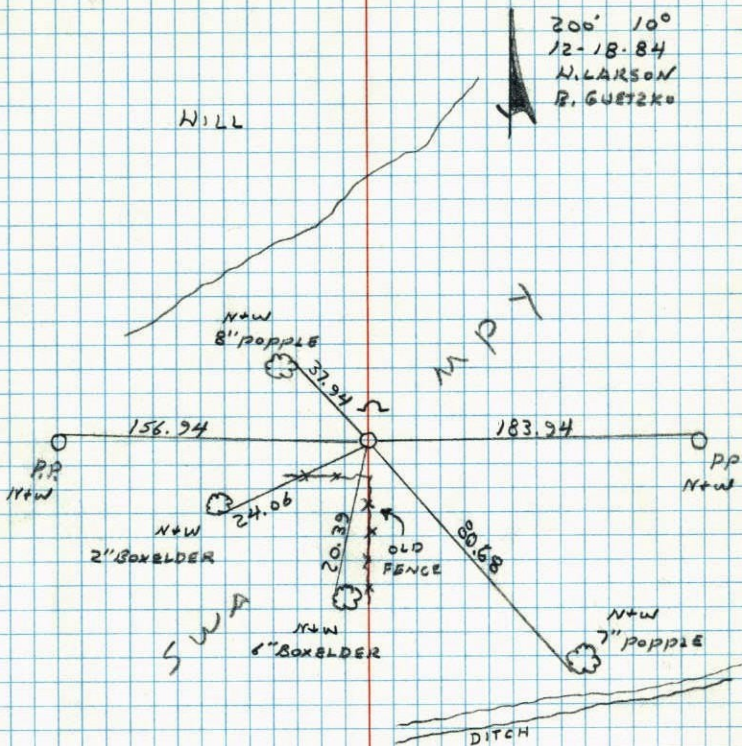 200' 10°
12-18-84
W. LARSON
B. GUETZKO
WILL
N+W
8" POPPLE
37.94
M P T
156.94
183.94
P.P.
N+W
PP
N+W
24.06
N+W
2" BOXELDER
20.39
OLD
FENCE
N+W
6" BOXELDER
N+W
7" POPPLE
DITCH